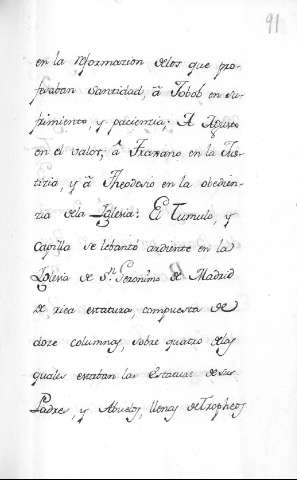 91
en la reformazion delos que pro-
fesaban Santidad, â Jobob en su-
frimiento, y pacienzia; A Agusto
en el valor, â Traxano en la Jus-
tizia, y â Theodosio en la obedien-
zia dela Iglesia: El Tumulo, y
Capilla se lebantò ardiente en la
Iglesia de Sn. Geronimo de Madrid
de rica estatura, compuesta de
doze columnas, sobre quatro delas
quales estaban las Estatuas desus
Padres, y Abuelos, llenas deTropheos